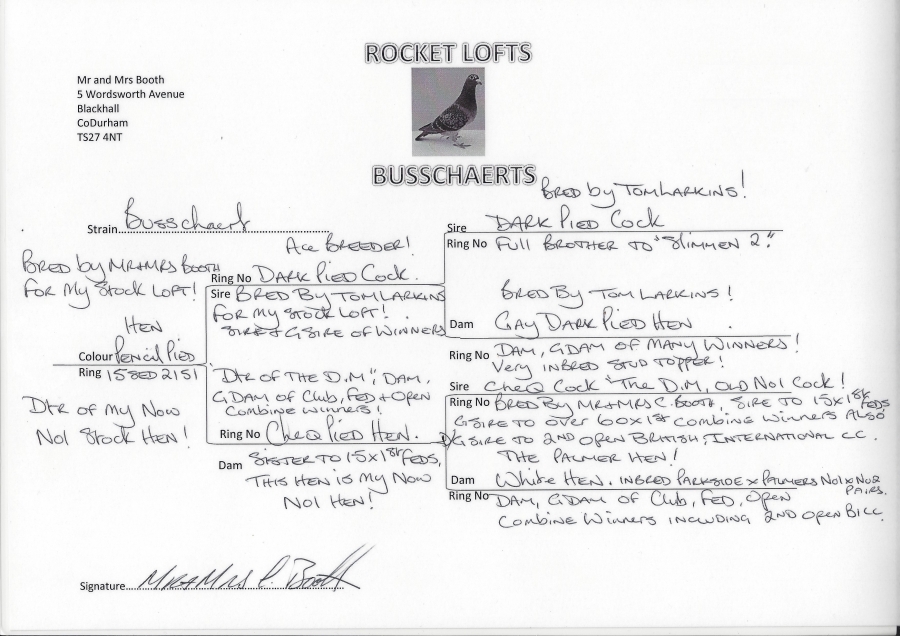 ROCKET LOFTS
Mr and Mrs Booth
5 Wordsworth Avenue
Blackhall
CoDurham
TS27 4NT
BUSSCHAERTS
BRED by TOM LARKINS!
Strain Busschaert
Sire DARK PIED COCK
Ring No FULL BROTHER TO "SLIMMEN 2".
ACE BREEDER!
BRED by MR+MRS BOOTH
FOR MY STOCK LOFT!
Ring No DARK PIED COCK.
Sire BRED BY TOM LARKINS
FOR MY STOCK LOFT!
SIRE + GSIRE OF WINNERS
BRED BY TOM LARKINS!
Dam GAY DARK PIED HEN.
Ring No DAM, GDAM OF MANY WINNERS!
VERY INBRED STUD TOPPER!
HEN
Colour Pencil PIED
Ring 15SED2151
DTR OF MY NOW
NO1 STOCK HEN!
"DTR OF THE D.M", DAM,
GDAM OF CLUB, FED + OPEN
COMBINE WINNERS!
Ring No CHEQ PIED HEN.
Dam SISTER TO 15X1st FEDS,
THIS HEN IS MY NOW
NO1 HEN!
Sire CHEQ COCK "THE D.M, OLD NO1 COCK!
Ring No BRED BY MR+MRS C. BOOTH. SIRE TO 15X1st FEDS
GSIRE TO OVER 60X1st COMBINE WINNERS ALSO
GSIRE TO 2ND OPEN BRITISH INTERNATIONAL CC.
THE PALMER HEN!
Dam WHITE HEN. INBRED PARKSIDE X PALMERS NO1 X NO2
PAIRS.
Ring No DAM, GDAM OF CLUB, FED, OPEN
COMBINE WINNERS INCLUDING 2ND OPEN BICC.
Signature Mr+Mrs C. Booth